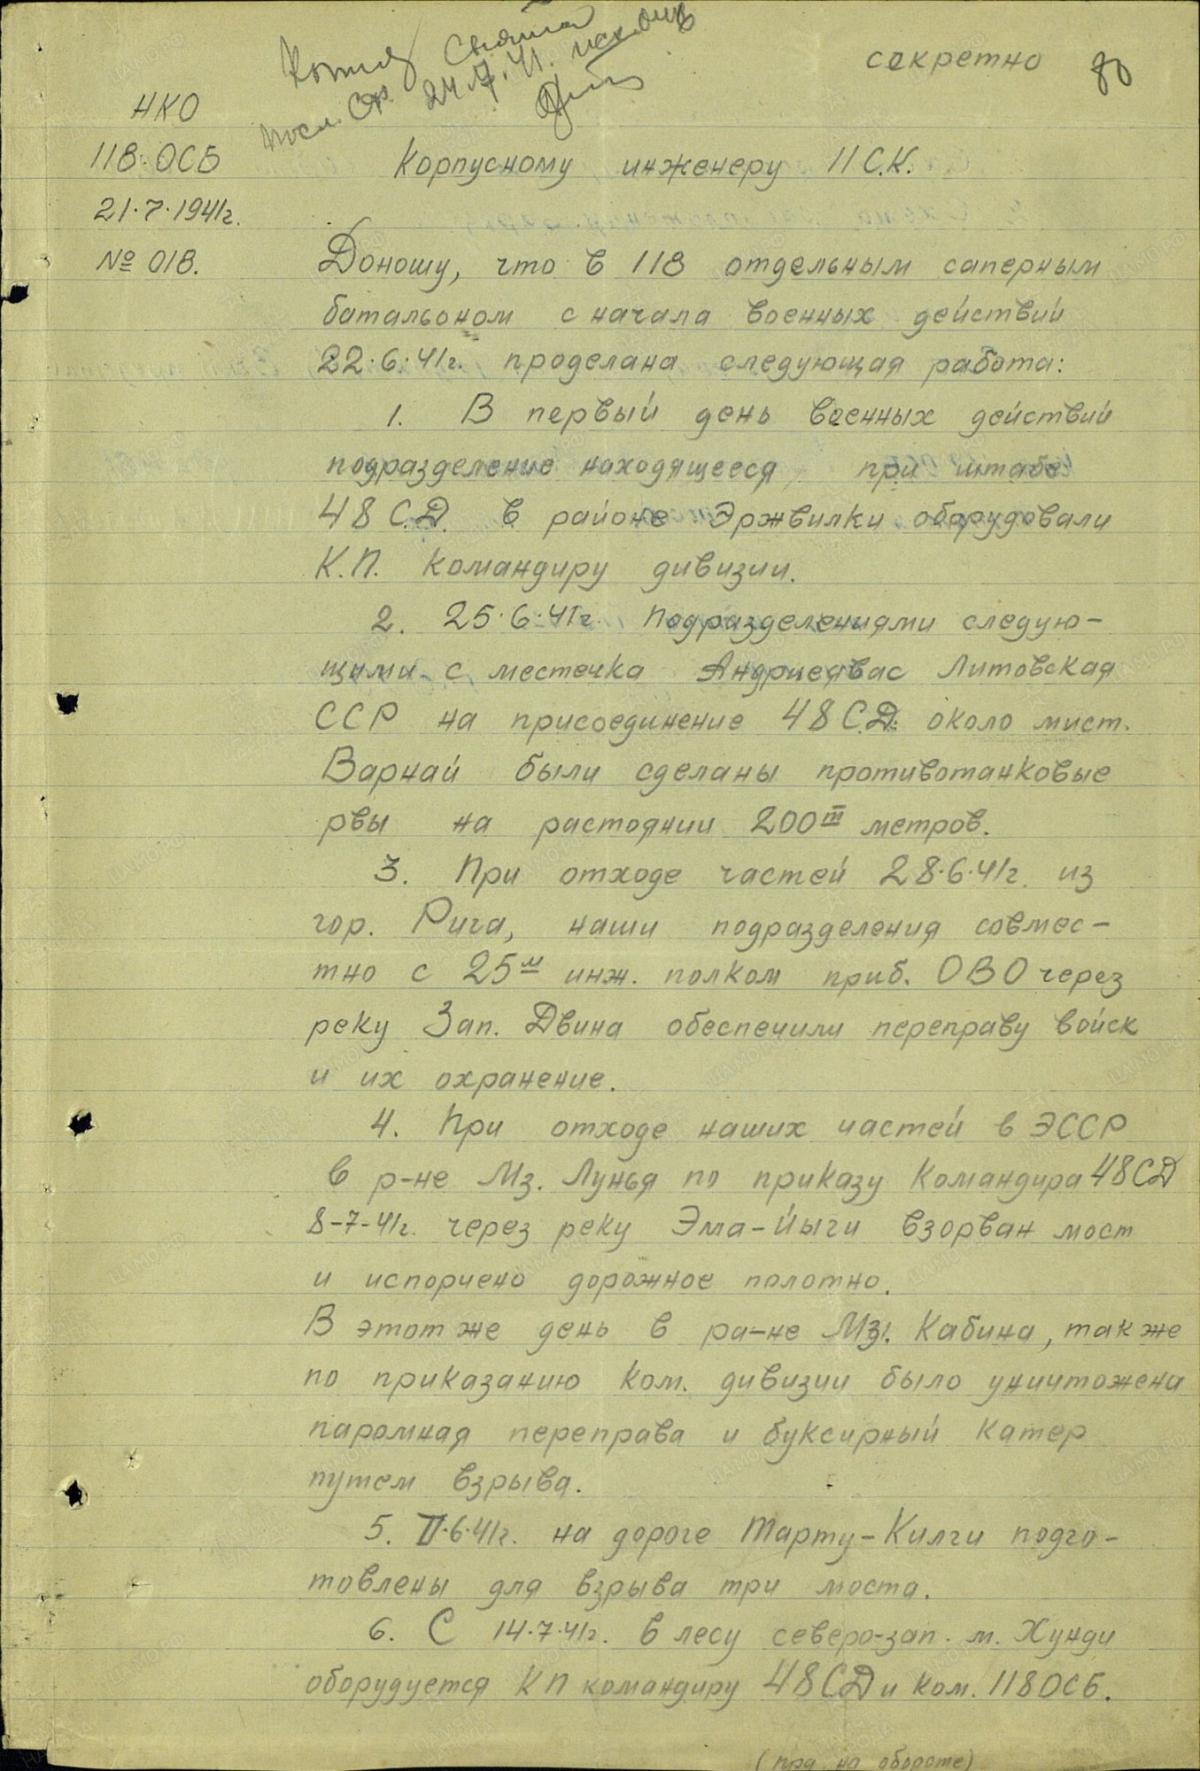 Копия снята
посл. Ст. 24.7.41.
секретно 80
НКО
118 ОСБ
21.7.1941г.
№ 018.
Корпусному инженеру 11 С.К.
Доношу, что в 118 отдельным саперным
батальоном с начала военных действий
22.6.41г. проделана следующая работа:
1. В первый день военных действий
подразделение находящееся при штабе
48 С.Д. в районе Эржвилки оборудовали
К.П. командиру дивизии.
2. 25.6.41г. Подразделениями следую-
щими с местечка Андриеявас Литовская
ССР на присоединение 48 С.Д. около мист.
Варнай были сделаны противотанковые
рвы на растоянии 200 метров.
3. При отходе частей 28.6.41г. из
гор. Рига, наши подразделения совмес-
тно с 25м инж. полком приб. ОВО через
реку Зап. Двина обеспечили переправу войск
и их охранение.
4. При отходе наших частей в ЭССР
в р-не Мз. Лунья по приказу Командира 48 СД
8-7-41г. через реку Эма-йыги взорван мост
и испорчено дорожное полотно.
В этот же день в ра-не Мз. Кабина, также
по приказанию ком. дивизии было уничтожена
паромная переправа и буксирный катер
путем взрыва.
5. 6.41г. на дороге Тарту-Килги подго-
товлены для взрыва три моста.
6. С 14.7.41г. в лесу северо-зап. м. Хунди
оборудуется КП командиру 48 СД и ком. 118 ОСБ.
(прд. на обороте)